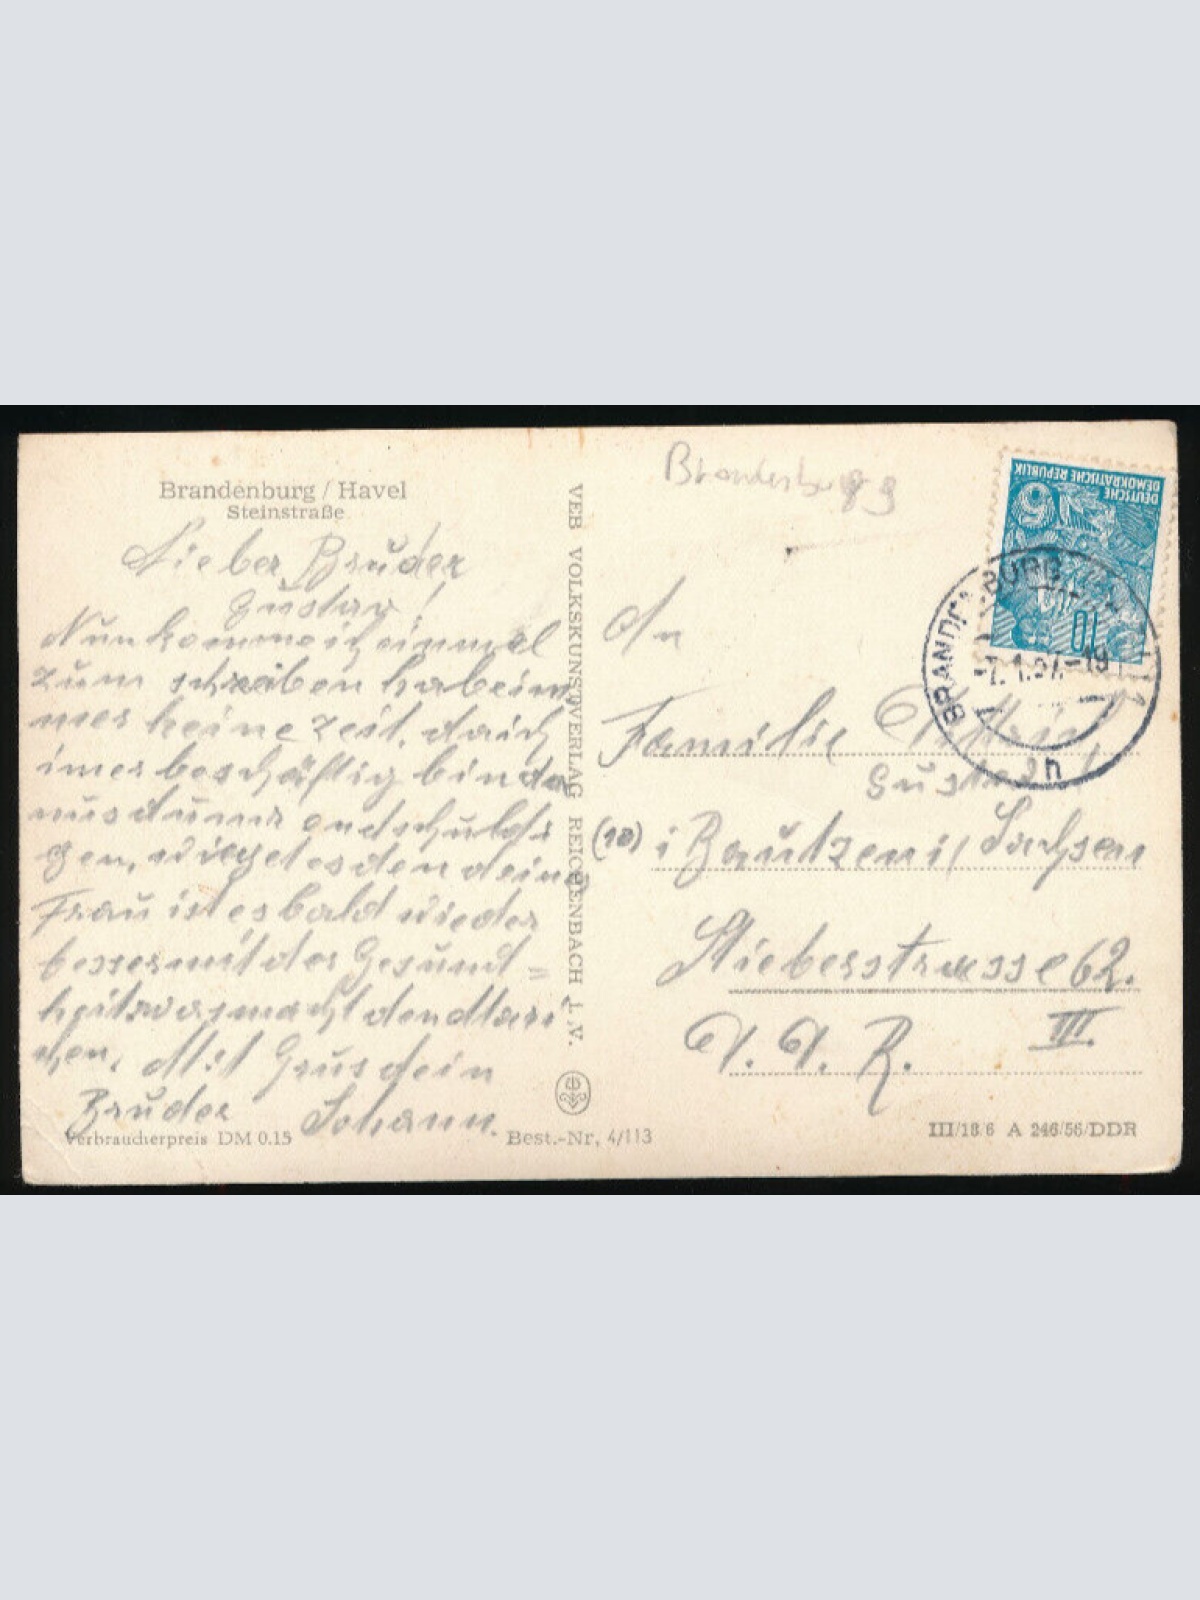 Brandenburg / Havel
Steinstraße
Lieber Bruder
Gustav!
Nun komme ich einmal
zum schreiben habe im
mer keine Zeit, da ich
imer beschäftig bin da
mus du mir endschuldi
gen, wie get es den deine
Frau ist es bald wieder
besser mit der Gesund=
heit was macht den
chen. Mit Grus dein
Bruder Johann.
Verbraucherpreis DM 0.15
Best.-Nr. 4/113
VEB VOLKSKUNSTVERLAG REICHENBACH i.V.
Brandenburg
DEUTSCHE
DEMOKRATISCHE REPUBLIK
10
BRANDENBURG
-7.1.57.-19
h
An
Familie
Gustav
(10) i Bautzen i/ Sachsen
Stieberstrasse 62.
D. D. R. III.
III/18/6 A 246/56/DDR